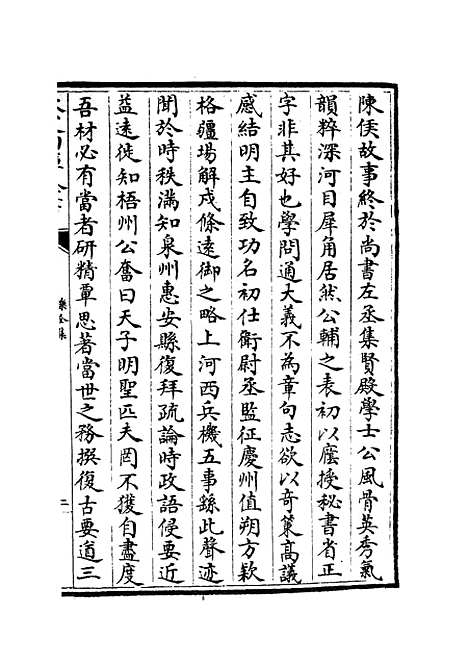 陳侯故事終於尚書左丞集賢殿學士公風骨英秀氣
韻粹深河目犀角居然公輔之表初以廕授秘書省正
字非其好也學問通大義不為章句志欲以奇策高議
感結明主自致功名初仕衛尉丞監征慶州值朔方欵
格疆場解戍條遠御之略上河西兵機五事繇此聲迹
聞於時秩滿知泉州惠安縣復拜疏論時政語侵要近
益遠徙知梧州公奮曰天子明聖匹夫罔不獲自盡度
吾材必有當者研精覃思著當世之務撰復古要道三
樂全集